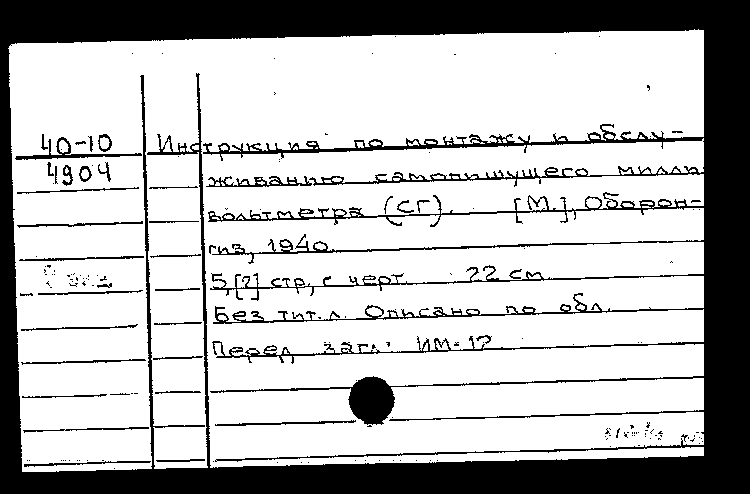 40-10 Инструкция по монтажу и обслу-
4904 живанию самопишущего милли
вольтметра (СГ). [М.], Оборон-
гиз, 1940.
5,[?] стр, с черт. 22 см
Без тит.л. Описано по обл.
Перед загл: ИМ-17